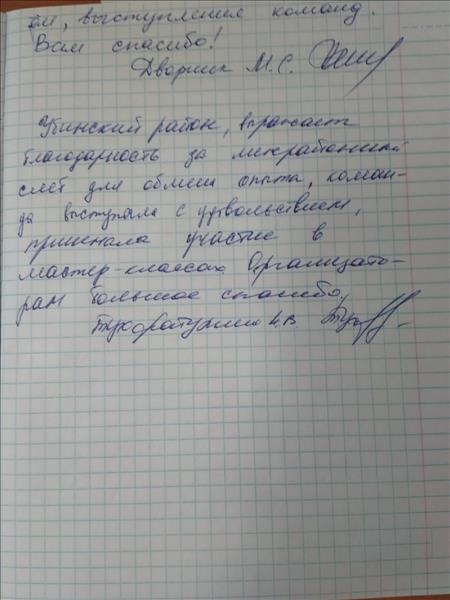 ём, выступления команд.
Вам спасибо!
Дворник М.С.
Убинский район, выражает
благодарность за межрайонный
слёт для обмена опыта, коман-
да выступала с удовольствием,
принимала участие в
мастер-классах Организато-
рам большое спасибо.